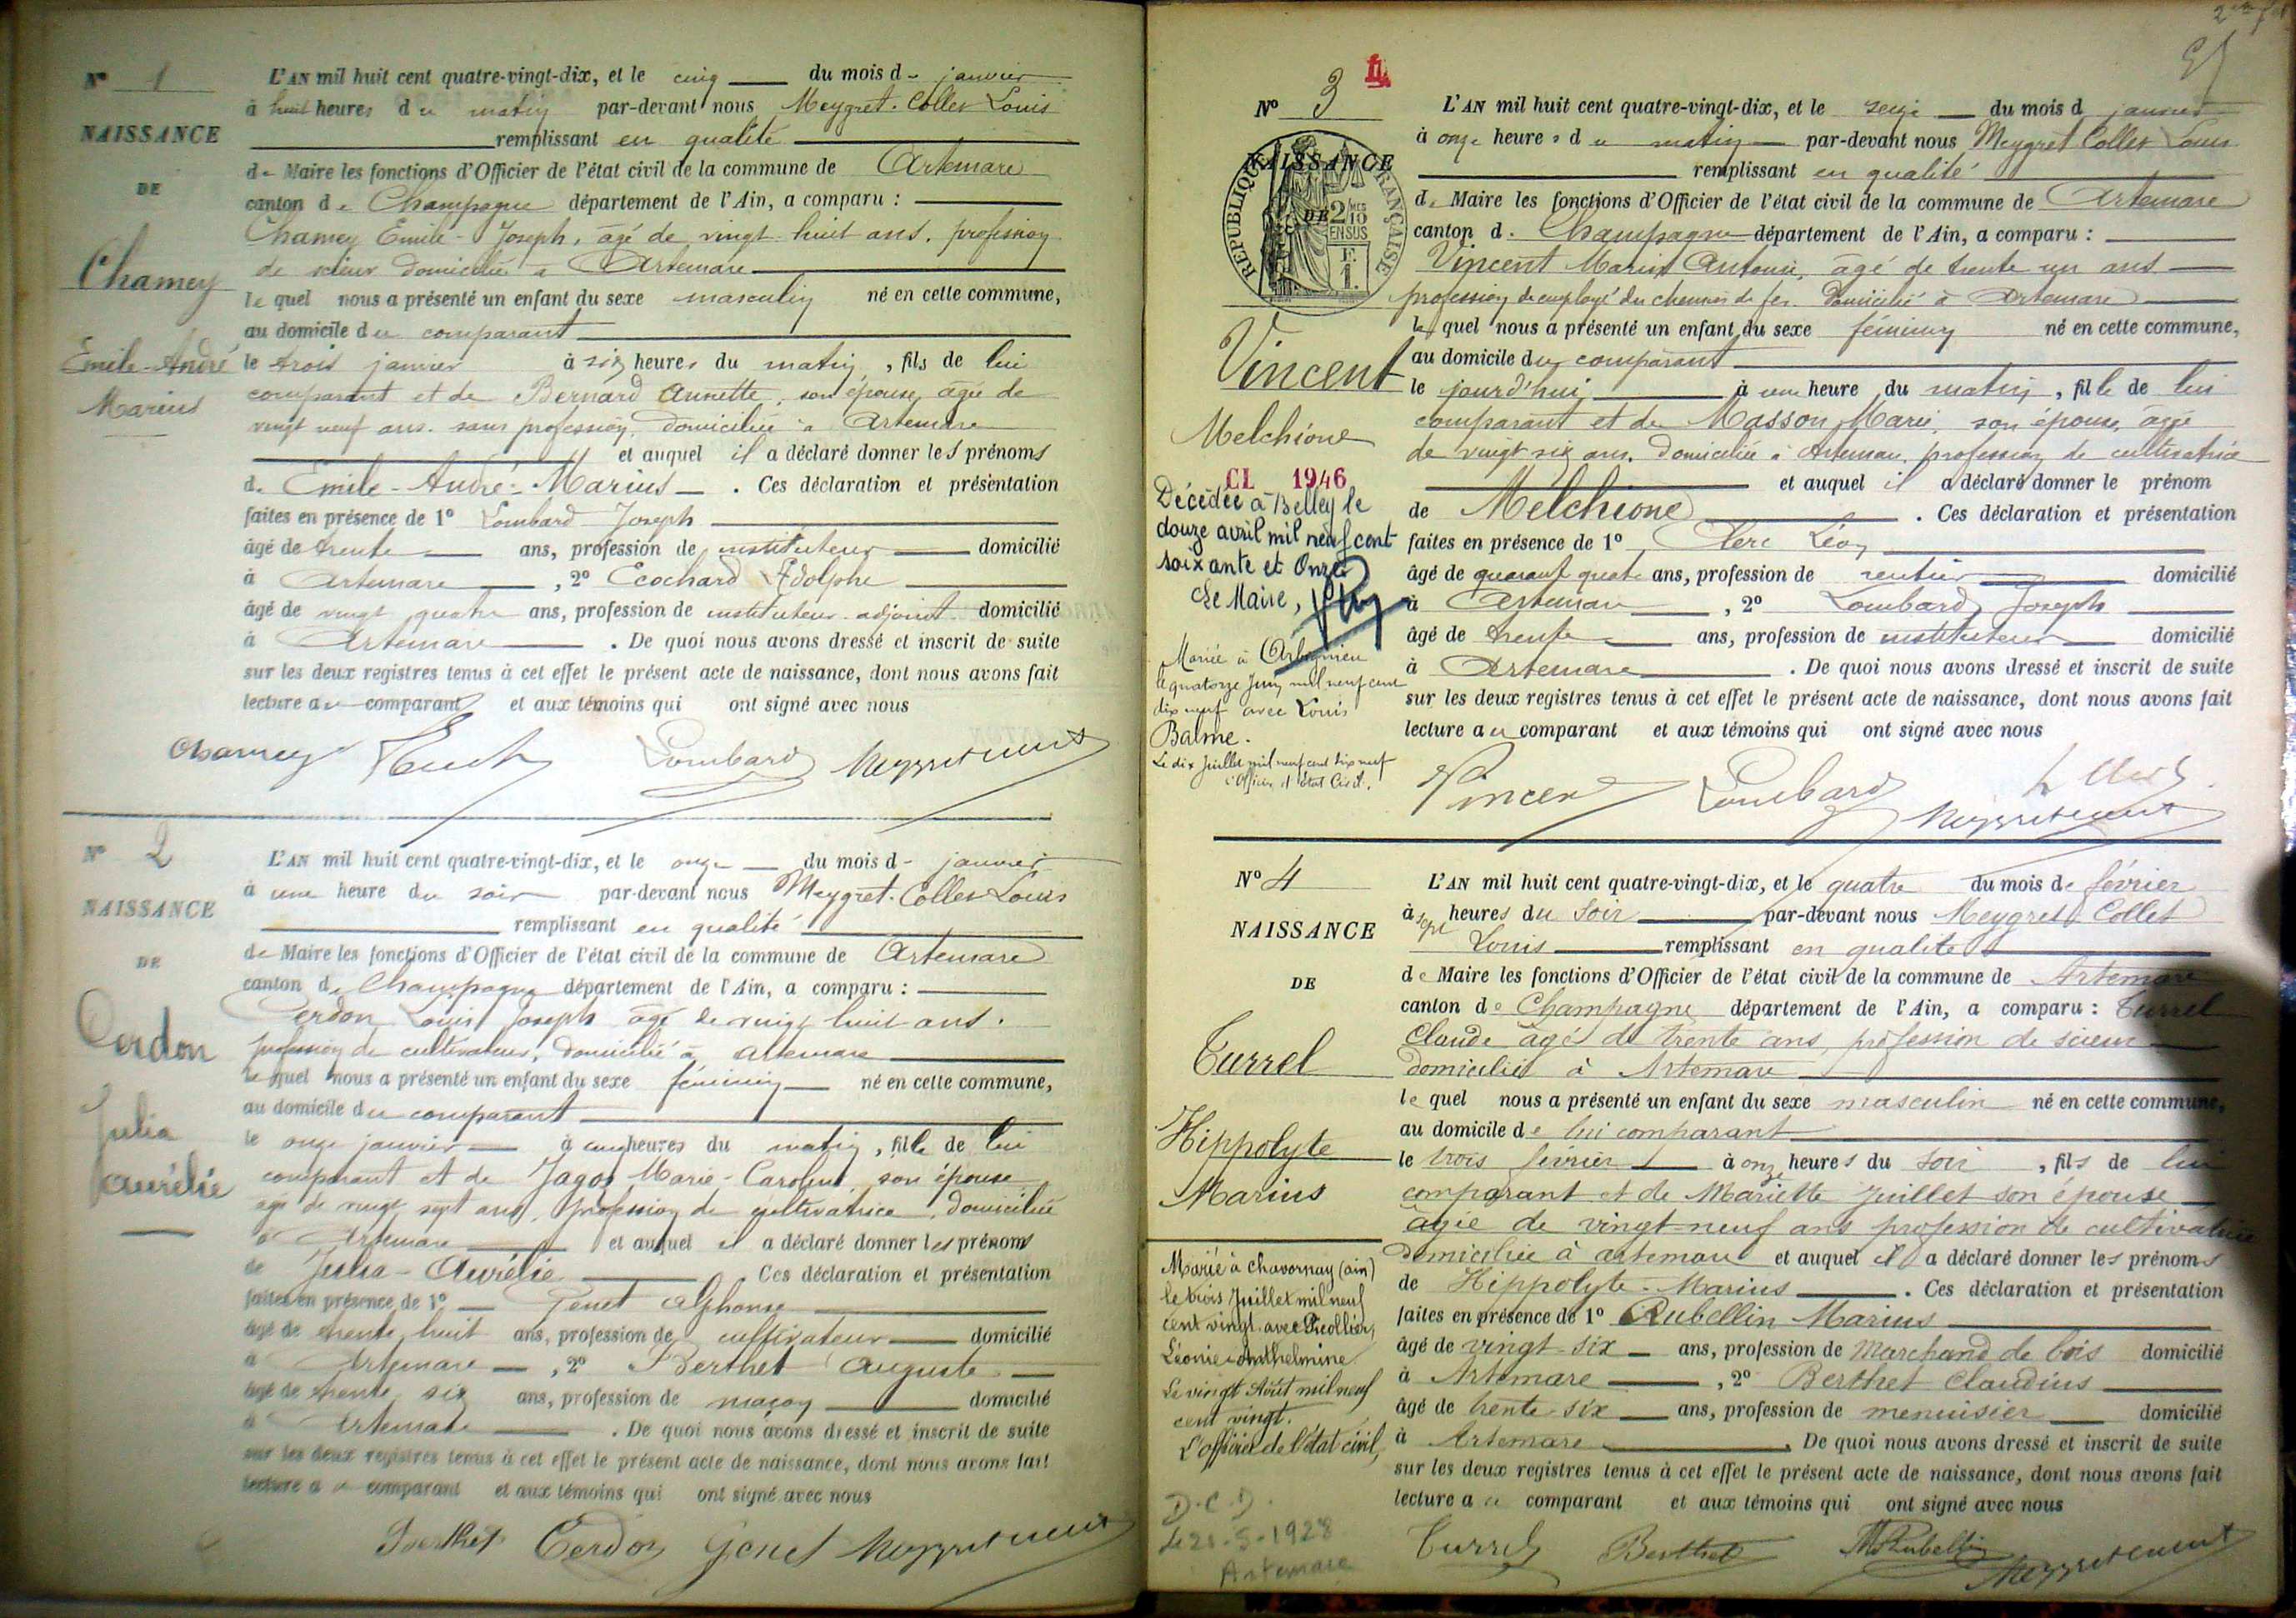 N° 1
NAISSANCE
DE
Chamey
Emile-André
Marius
L'AN mil huit cent quatre-vingt-dix, et le cinq du mois de janvier
à huit heures du matin par-devant nous Meygret-Collet Louis
remplissant en qualité
de Maire les fonctions d'Officier de l'état civil de la commune de Artemare
canton de Champagne département de l'Ain, a comparu :
Chamey Emile-Joseph, âgé de vingt huit ans, profession
de scieur domicilié à Artemare
lequel nous a présenté un enfant du sexe masculin né en cette commune,
au domicile du comparant
le trois janvier à six heures du matin, fils de lui
comparant et de Bernard Annette, son épouse, âgée de
vingt neuf ans, sans profession, domiciliée à Artemare
et auquel il a déclaré donner les prénoms
de Emile-André-Marius. Ces déclaration et présentation
faites en présence de 1° Lombard Joseph
âgé de trente ans, profession de instituteur domicilié
à Artemare, 2° Ecochard Adolphe
âgé de vingt quatre ans, profession de instituteur adjoint domicilié
à Artemare. De quoi nous avons dressé et inscrit de suite
sur les deux registres tenus à cet effet le présent acte de naissance, dont nous avons fait
lecture au comparant et aux témoins qui ont signé avec nous
Chamey Lombard
N° 2
NAISSANCE
DE
Cerdon
Julia
Aurélie
L'AN mil huit cent quatre-vingt-dix, et le onze du mois de janvier
à une heure du soir par-devant nous Meygret-Collet Louis
remplissant en qualité
de Maire les fonctions d'Officier de l'état civil de la commune de Artemare
canton de Champagne département de l'Ain, a comparu :
Cerdon Louis Joseph âgé de vingt huit ans,
profession de cultivateur, domicilié à Artemare
lequel nous a présenté un enfant du sexe féminin né en cette commune,
au domicile du comparant
le onze janvier à cinq heures du matin, fille de lui
comparant et de Jagot Marie-Caroline, son épouse
âgée de vingt sept ans, profession de cultivatrice, domiciliée
à Artemare et auquel il a déclaré donner les prénoms
de Julia-Aurélie Ces déclaration et présentation
faites en présence de 1° Genet Alphonse
âgé de trente huit ans, profession de cultivateur domicilié
à Artemare, 2° Berthet Auguste
âgé de trente six ans, profession de maçon domicilié
à Artemare. De quoi nous avons dressé et inscrit de suite
sur les deux registres tenus à cet effet le présent acte de naissance, dont nous avons fait
lecture au comparant et aux témoins qui ont signé avec nous
Berthet Cerdon Genet
N° 3
NAISSANCE
DE
REPUBLIQUE FRANÇAISE
Vincent
Melchione
CL 1946
Décédée à Belley le
douze avril mil neuf cent
soixante et Onze
Le Maire,
Mariée à Arbignieu
le quatorze Juin mil neuf cent
dix neuf avec Louis
Balme.
Le dix Juillet mil neuf cent dix neuf
L'Officier d'état Civil.
L'AN mil huit cent quatre-vingt-dix, et le seize du mois d janvier
à onze heures du matin par-devant nous Meygret Collet Louis
remplissant en qualité
de Maire les fonctions d'Officier de l'état civil de la commune de Artemare
canton de Champagne département de l'Ain, a comparu :
Vincent Marin Antoine, âgé de trente un ans
profession de employé du chemin de fer domicilié à Artemare
lequel nous a présenté un enfant du sexe féminin né en cette commune,
au domicile du comparant
le jourd'hui à une heure du matin, fille de lui
comparant et de Masson Marie, son épouse, âgée
de vingt six ans, domiciliée à Artemare, profession de cultivatrice
et auquel il a déclaré donner le prénom
de Melchione. Ces déclaration et présentation
faites en présence de 1° Clerc Léon
âgé de quarante quatre ans, profession de rentier domicilié
à Artemare, 2° Lombard Joseph
âgé de trente ans, profession de instituteur domicilié
à Artemare. De quoi nous avons dressé et inscrit de suite
sur les deux registres tenus à cet effet le présent acte de naissance, dont nous avons fait
lecture au comparant et aux témoins qui ont signé avec nous
Vincent Lombard
N° 4
NAISSANCE
DE
Turrel
Hippolyte
Marius
Marié à Chavornay (Ain)
le trois Juillet mil neuf
cent vingt avec Picollier,
Léonie Anthelmine
Le vingt Août mil neuf
cent vingt.
L'officier de l'état civil,
D.C.D.
1928
Artemare
L'AN mil huit cent quatre-vingt-dix, et le quatre du mois de février
à sept heures du soir par-devant nous Meygret Collet
Louis remplissant en qualité
de Maire les fonctions d'Officier de l'état civil de la commune de Artemare
canton de Champagne département de l'Ain, a comparu : Turrel
Claude âgé de trente ans, profession de scieur
domicilié à Artemare
lequel nous a présenté un enfant du sexe masculin né en cette commune,
au domicile de lui comparant
le trois février à onze heures du soir, fils de lui
comparant et de Mariette Juillet son épouse
âgée de vingt-neuf ans profession de cultivatrice
domiciliée à Artemare et auquel il a déclaré donner les prénoms
de Hippolyte-Marius. Ces déclaration et présentation
faites en présence de 1° Rubellin Marius
âgé de vingt-six ans, profession de Marchand de bois domicilié
à Artemare, 2° Berthet Claudius
âgé de trente-six ans, profession de menuisier domicilié
à Artemare. De quoi nous avons dressé et inscrit de suite
sur les deux registres tenus à cet effet le présent acte de naissance, dont nous avons fait
lecture au comparant et aux témoins qui ont signé avec nous
Turrel Berthet M Rubellin